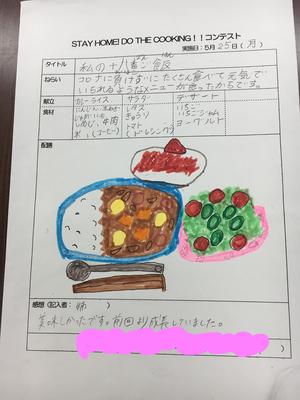 STAY HOME! DO THE COOKING!!コンテスト
実施日:5月25日(月)
タイトル 私の十八番ご飯
ねらい コロナに負けずにたくさん食べて元気で
いられるようなメニューが良かったからです。
献立 カレーライス サラダ デザート
食材 にんじん、玉ねぎ レタス いちご
じゃがいも きゅうり いちごジャム
しめじ、牛肉 トマト ヨーグルト
米、(コーヒー) (ドレッシング)
配膳
感想(記入者: 姉 )
美味しかったです。前回より成長していました。